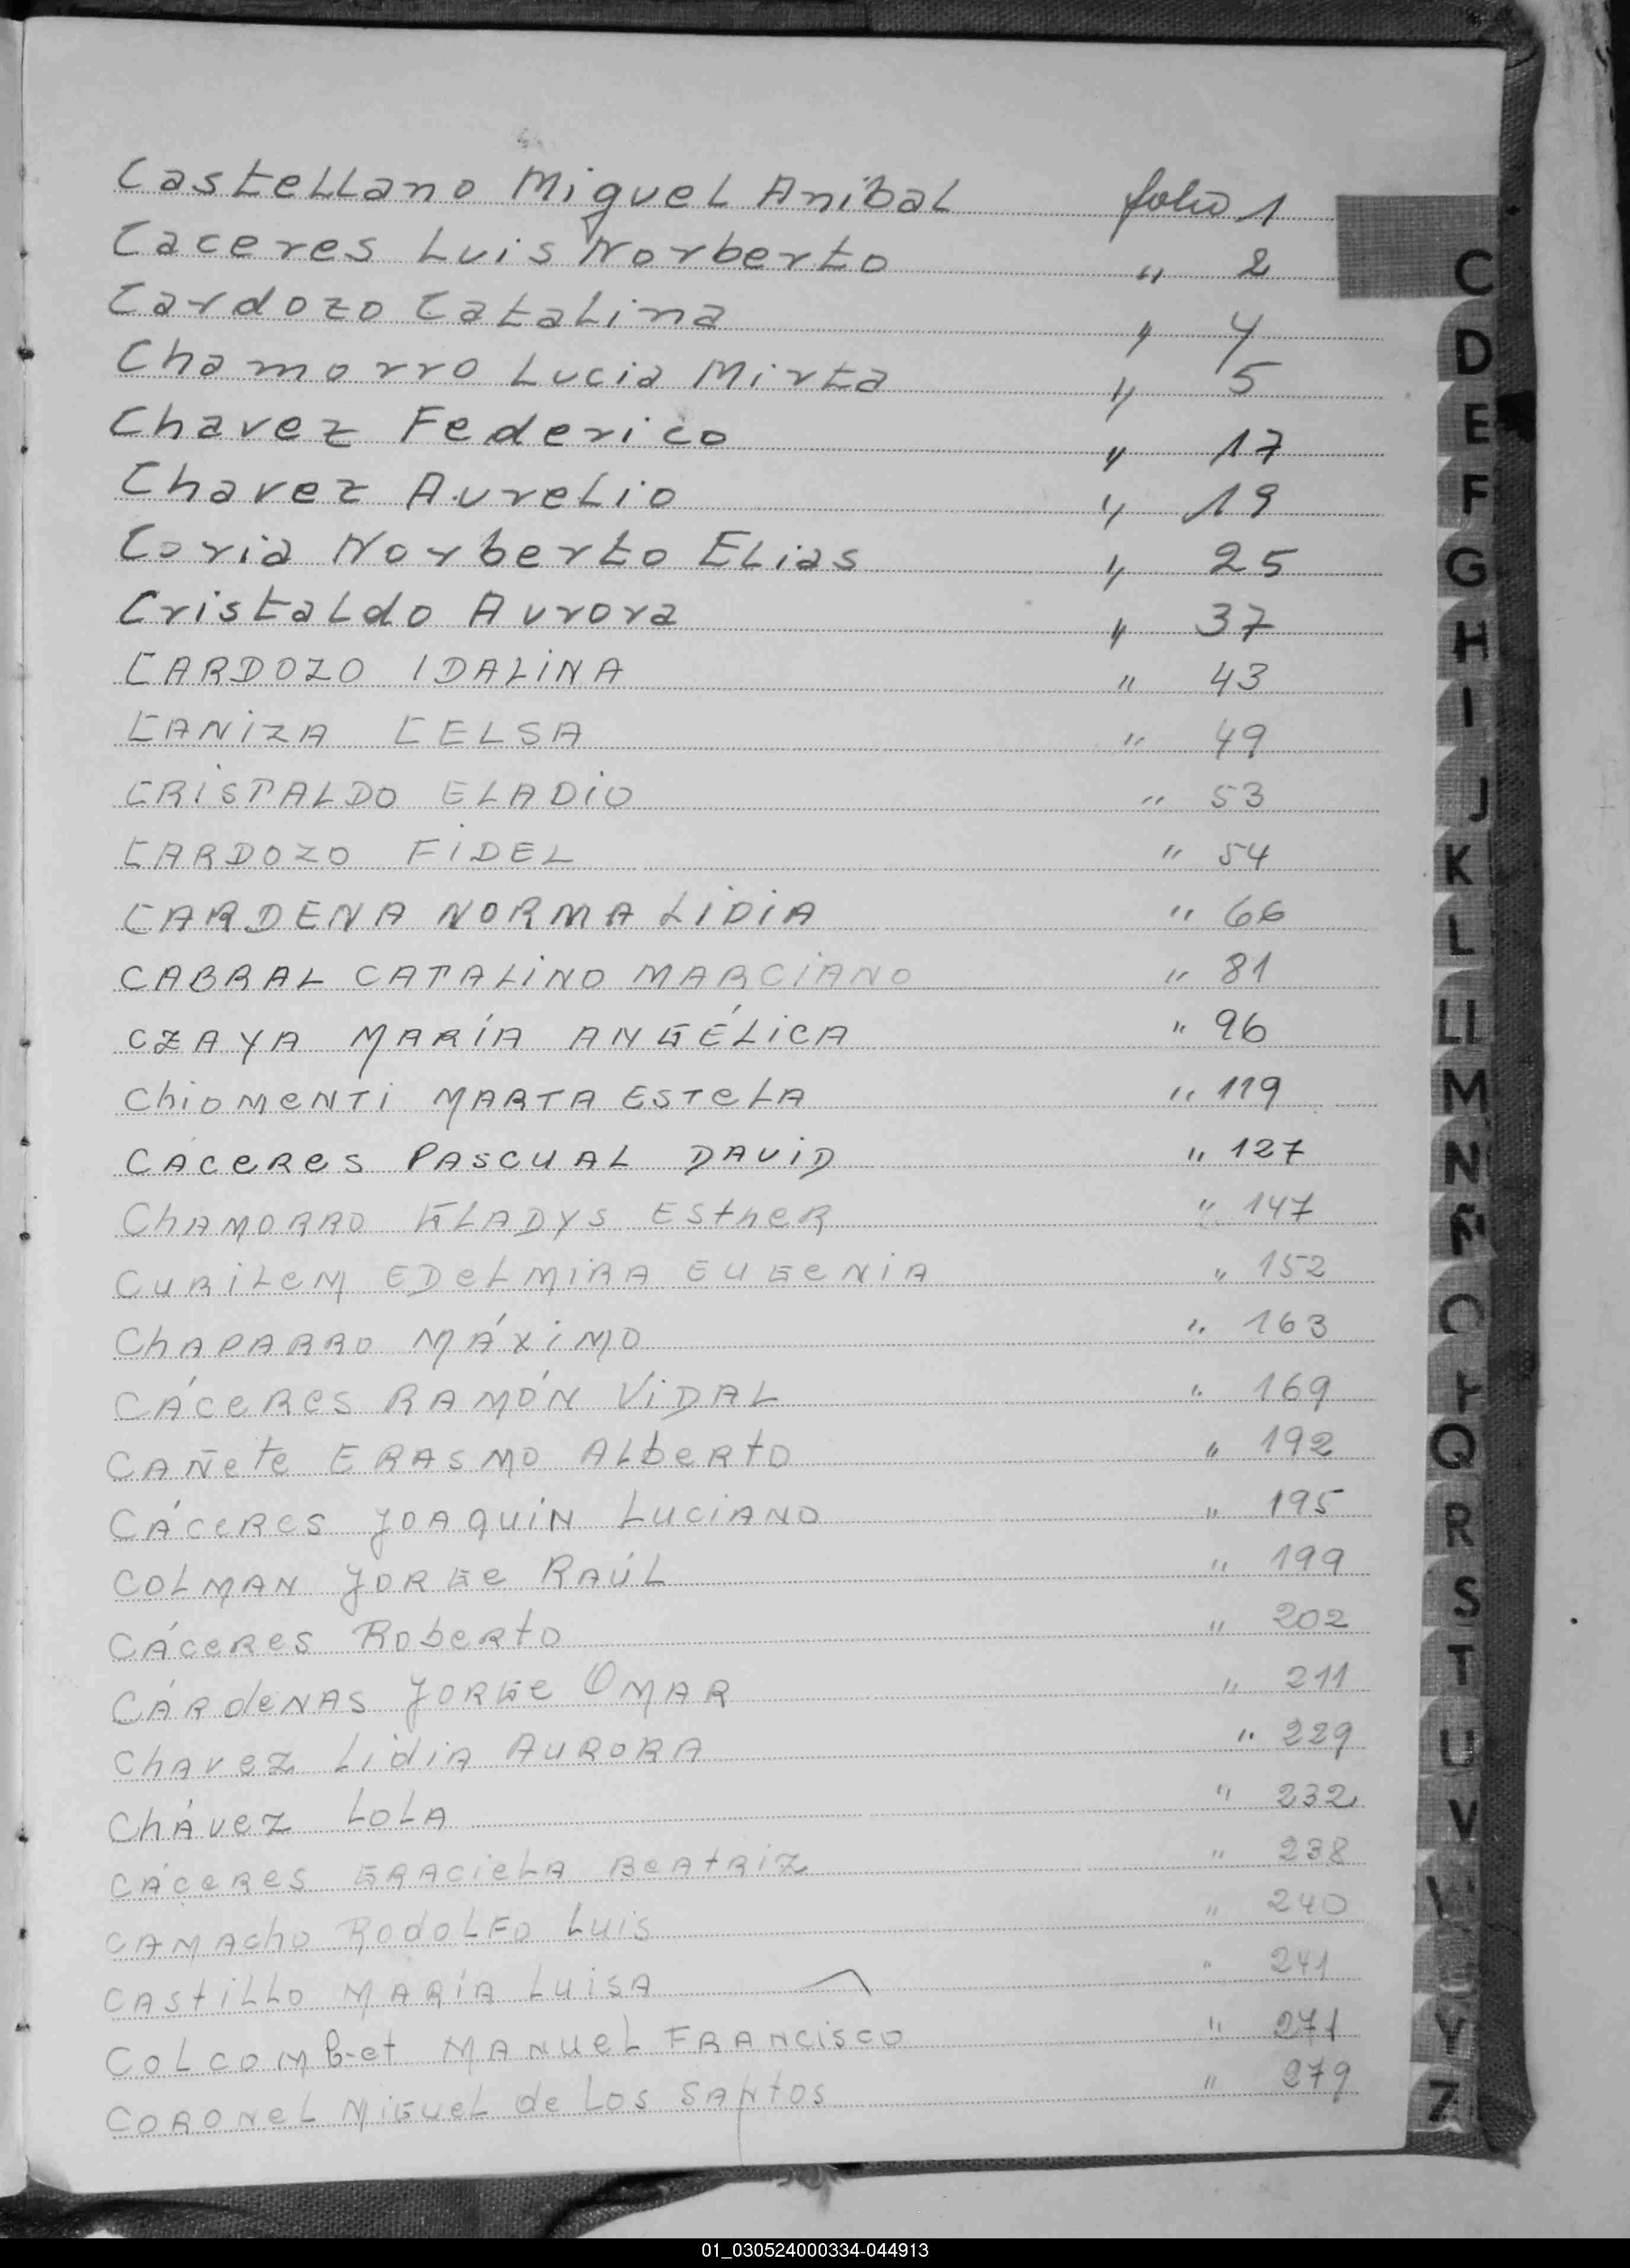 Castellano Miguel Anibal folio 1
Caceres Luis Norberto " 2
Cardozo Catalina " 4
Chamorro Lucia Mirta " 5
Chavez Federico " 17
Chavez Aurelio " 19
Coria Norberto Elias " 25
Cristaldo Aurora " 37
CARDOZO IDALiNA " 43
CANiZA CELSA " 49
CRiSTALDO ELADiO " 53
CARDOZO FiDEL " 54
CARDENA NORMA LiDiA " 66
CABRAL CATALiNO MARCiANO " 81
CZAYA MARÍA ANGÉLiCA " 96
ChiOMeNTi MARTA ESTeLA " 119
CÁCeReS PASCUAL DAViD " 127
ChAMORRO GLADYS ESTheR " 147
CURiLeM EDeLMiRA EUGeNiA " 152
ChAPARRO MÁXiMO " 163
CÁCeReS RAMÓN ViDAL " 169
CAÑete ERASMO ALbeRtO " 192
CÁCeReS JOAQUiN LUCiANO " 195
COLMAN JORGe RAÚL " 199
CÁCeReS RObeRtO " 202
CÁRdeNAS JORGe OMAR " 211
ChAveZ LidiA AURORA " 229
ChÁveZ LOLA " 232
CÁCeReS GRACieLA BeAtRiZ " 238
CAMAChO ROdOLFO LUiS " 240
CAStiLLO MARÍA LUiSA " 241
COLCOMb-et MANUeL FRANCiSCO " 271
CORONeL MiGUeL de LOS SANtOS " 279
C
D
E
F
G
H
I
J
K
L
LL
M
N
Ñ
O
P
Q
R
S
T
U
V
Y
Z
01_030524000334-044913